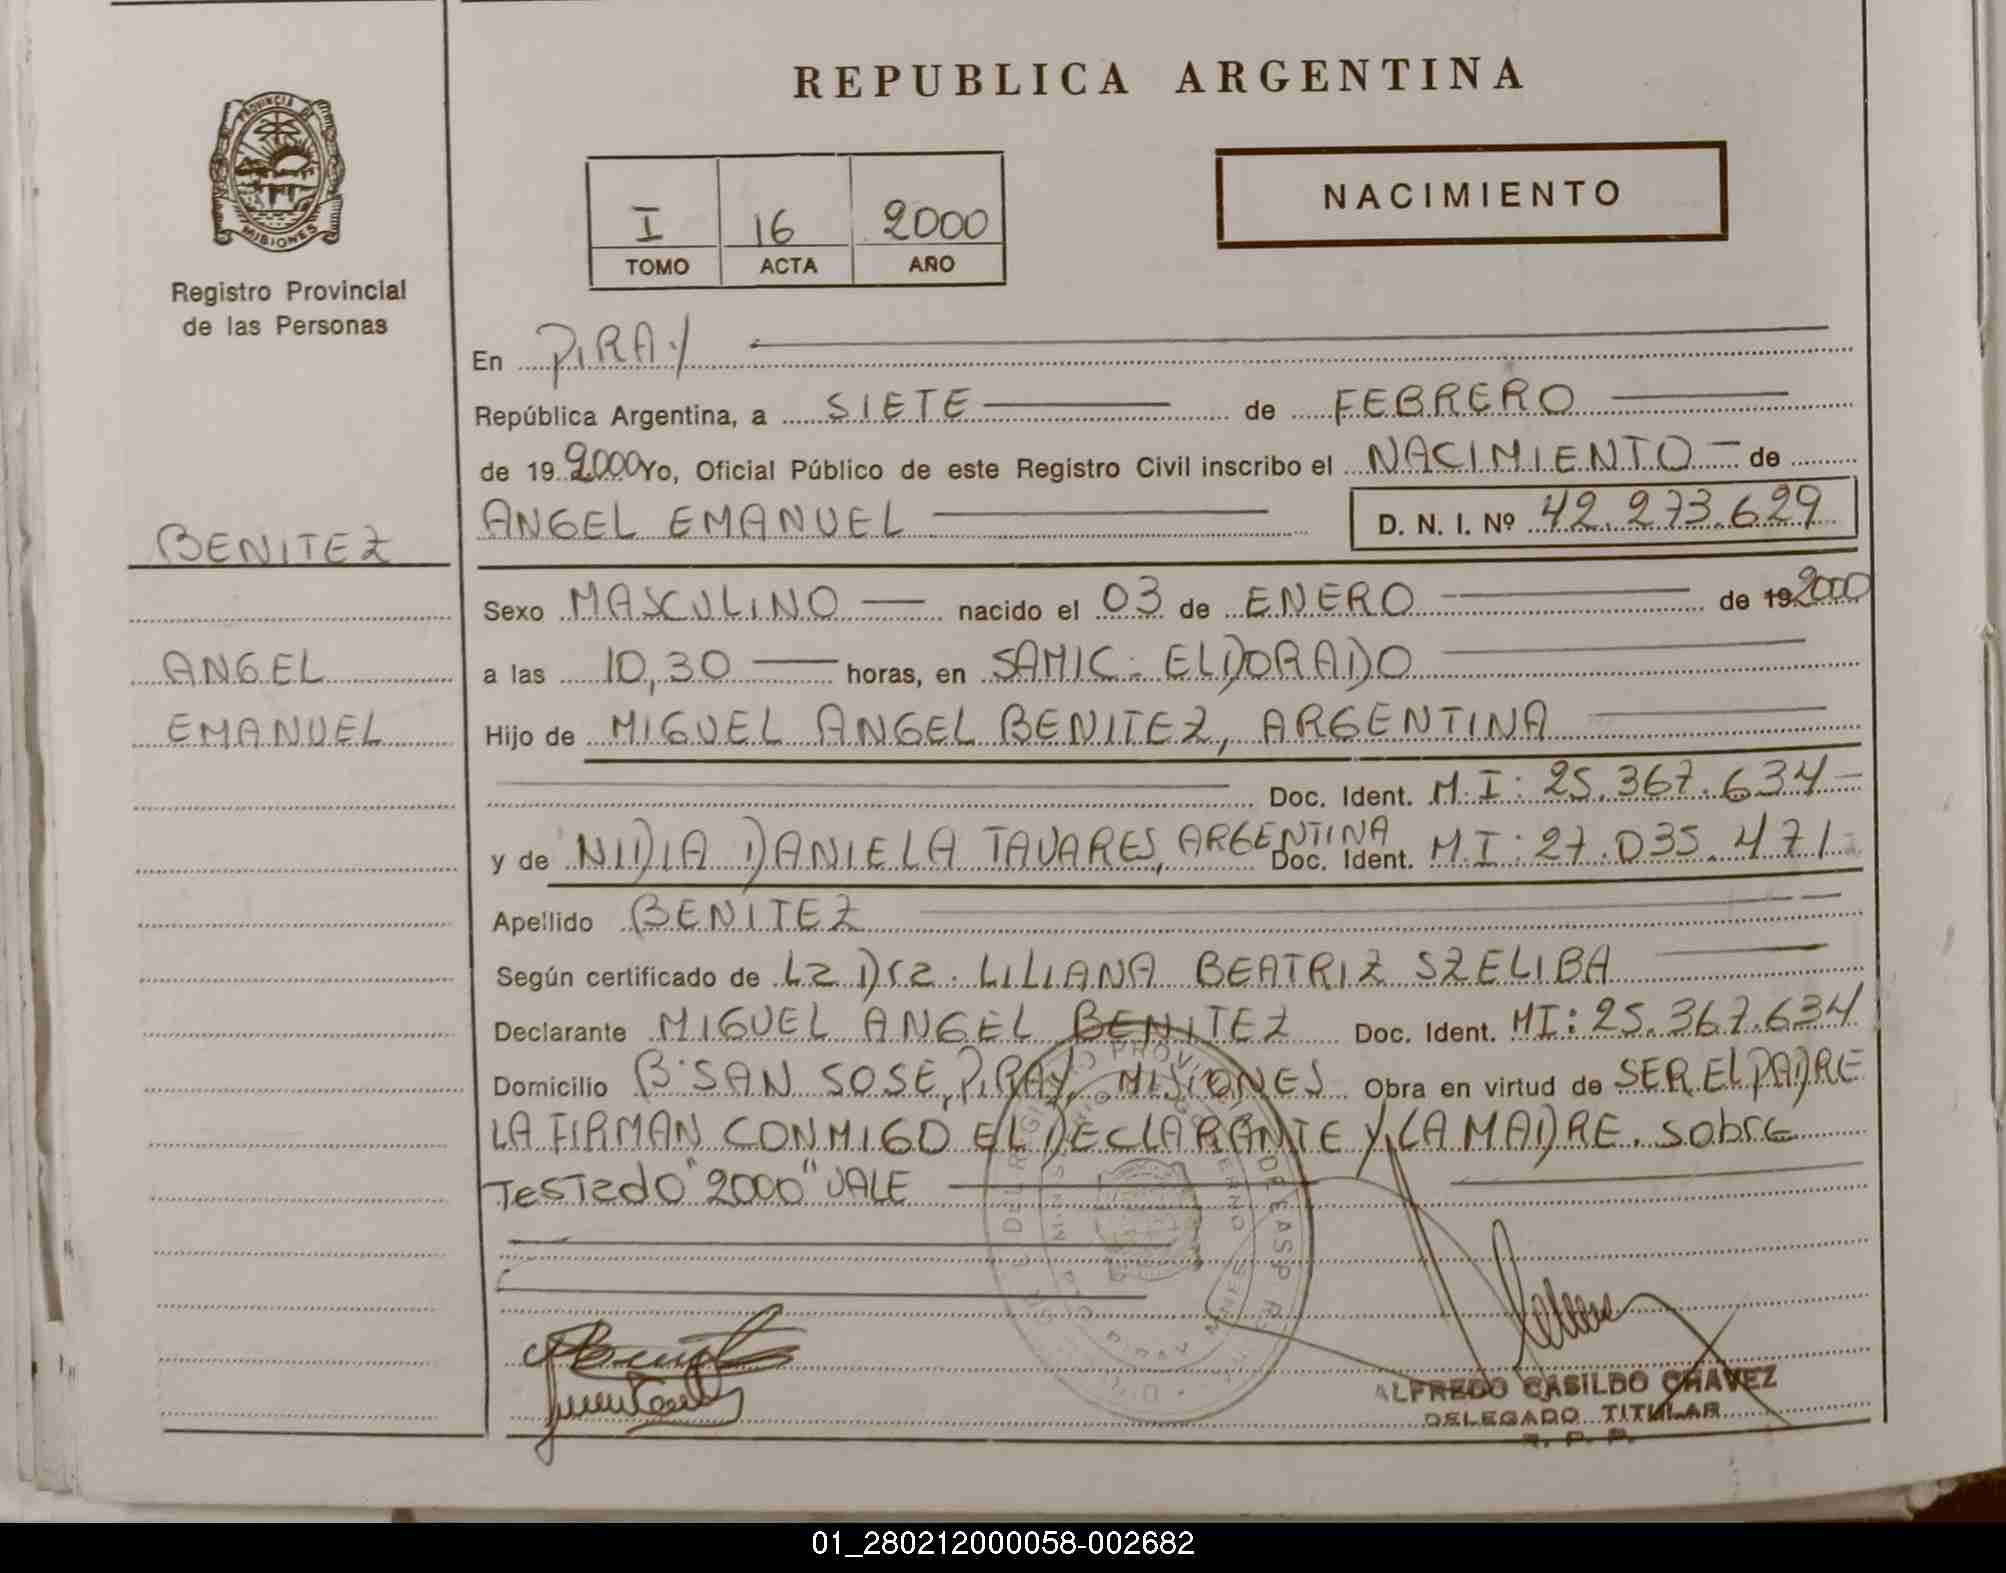 REPUBLICA ARGENTINA
PROVINCIA DE
MISIONES
Registro Provincial
de las Personas
NACIMIENTO
I 16 2000
TOMO ACTA AÑO
En PIRAY
República Argentina, a SIETE de FEBRERO
de 19 2000 Yo, Oficial Público de este Registro Civil inscribo el NACIMIENTO de
ANGEL EMANUEL D. N. I. Nº 42.273.629
BENITEZ
ANGEL
EMANUEL
Sexo MASCULINO nacido el 03 de ENERO de 19 2000
a las 10,30 horas, en SAMIC - ELDORADO
Hijo de MIGUEL ANGEL BENITEZ, ARGENTINA
Doc. Ident. M.I: 25.367.634
y de NIDIA DANIELA TAVARES, ARGENTINA Doc. Ident. M.I: 27.035.471
Apellido BENITEZ
Según certificado de La Dra. LILIANA BEATRIZ SZELIBA
Declarante MIGUEL ANGEL BENITEZ Doc. Ident. MI: 25.367.634
Domicilio B: SAN JOSE, PIRAY, MISIONES Obra en virtud de SER EL PADRE
LA FIRMAN CONMIGO EL DECLARANTE Y LA MADRE. Sobre
Testado "2000" VALE
ALFREDO CASILDO CHAVEZ
DELEGADO TITULAR
R. P. P.
01_280212000058-002682